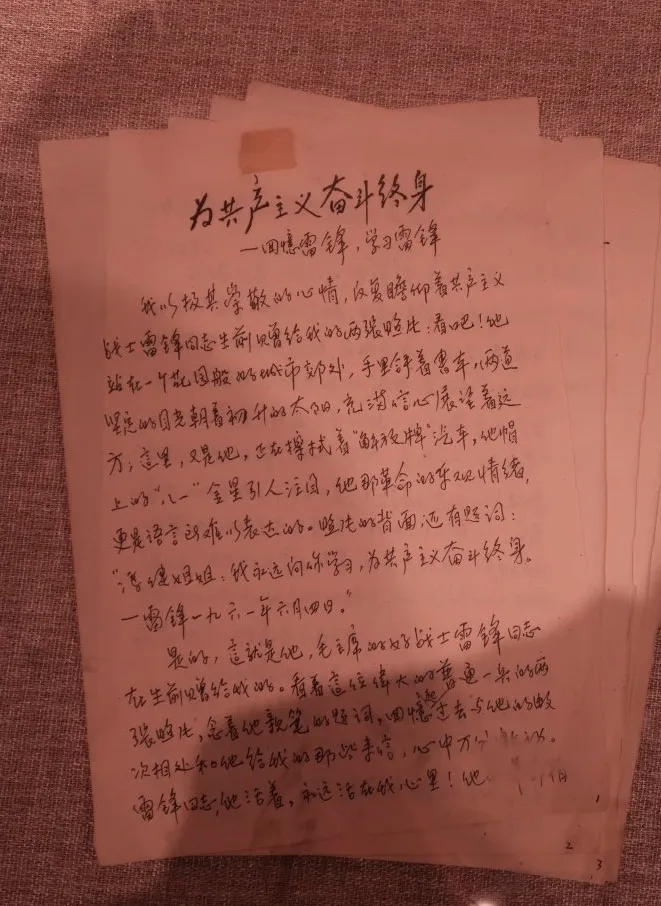 为共产主义奋斗终身
—回憶雷锋，学习雷锋
我以极其崇敬的心情，反复瞻仰着共产主义
战士雷锋同志生前贈给我的两張照片：看吧！他
站在一个花园般的城市郊外，手里
坚定的目光朝着初升的太阳，充满信心展望着远
方；這里，又是他，正在擦拭着“解放牌”汽车，他帽
上的“八一”金星引人注目，他那革命的乐观情绪，
更是语言所难以表达的。照片的背面还有题词：
姐姐：我永远向你学习，为共产主义奋斗终身。
—雷锋一九六一年六月四日。”
是的，這就是他，毛主席的好战士雷锋同志
在生前贈给我的。看着這位偉大的普通一兵的两
張照片，念着他親笔的题词，回憶起过去与他的数
次相处和他给我的那些来信，心中万分
雷锋同志，他活着，永远活在我心里！他
1
2
3